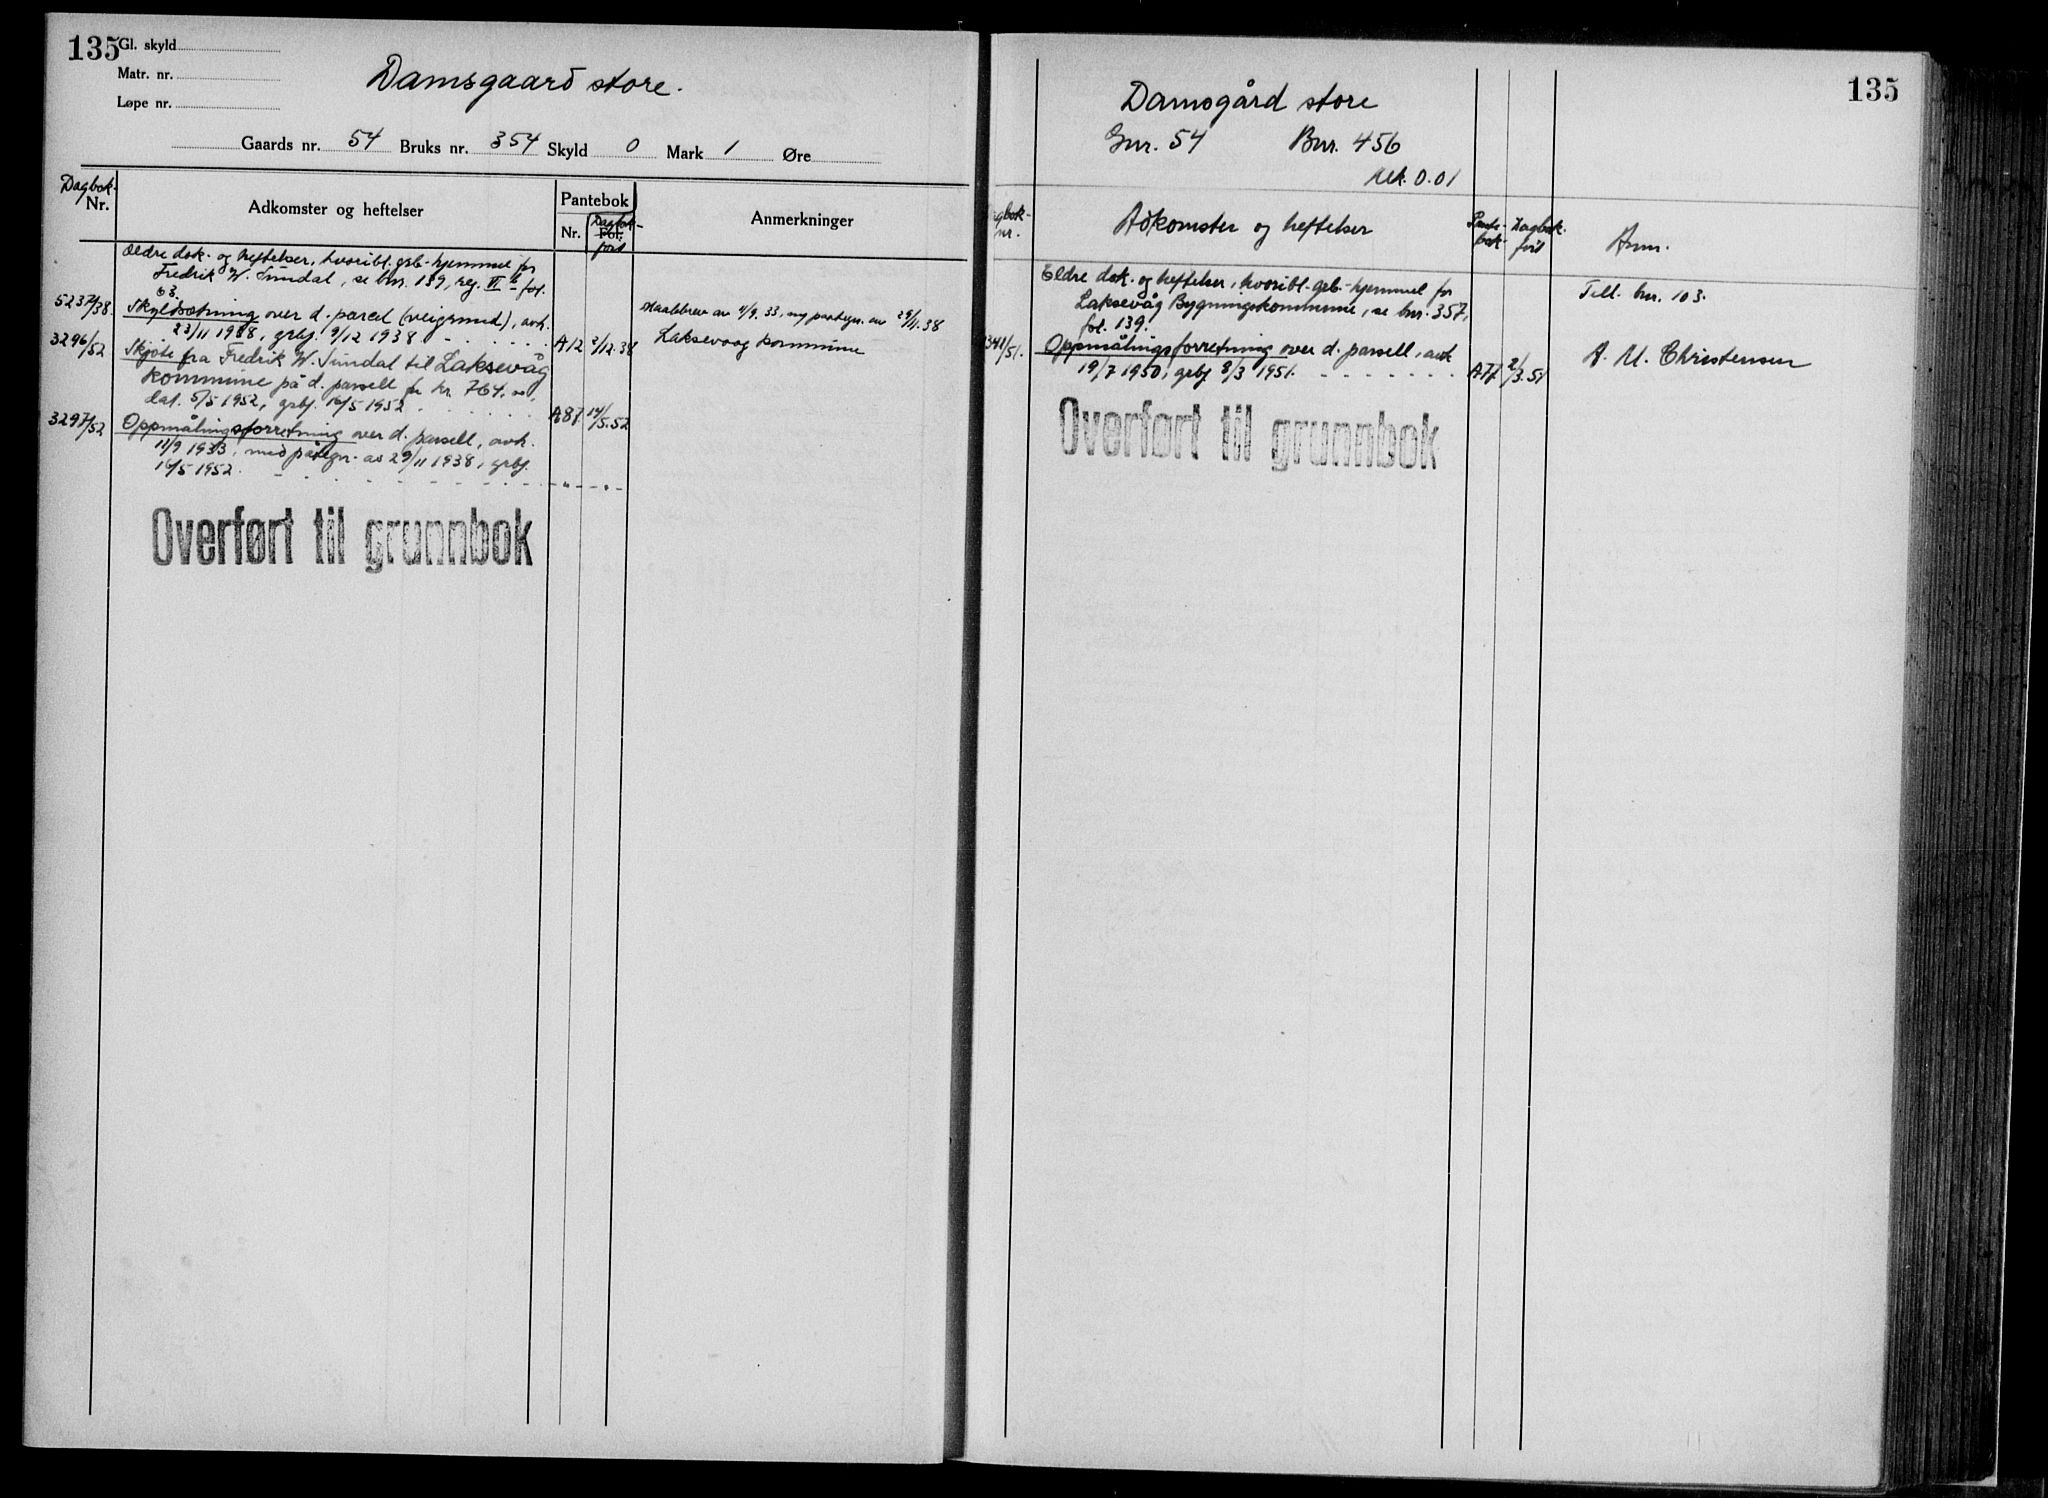 135
Gl. skyld
Matr. nr.
Løpe nr.
Damsgaard store.
Gaards nr. 54 Bruks nr. 354 Skyld 0 Mark 1 Øre
Dagbok-
Nr.
Adkomster og heftelser
Pantebok
Nr.
Fol.
Dagbok-
ført
Anmerkninger
Ældre dok. og heftelser, hvoribl. grb-hjemmel for
Fredrik W. Sundal, se bnr. 139, reg. VI b fol.
63.
5237/38. Skyldsetning over d. parcel (veigrund), avh.
23/11 1938, grbj. 9/12 1938 A12 2/12.38
Maalebrev av 11/9.33, m/ paategn. av 29/11.38
Laksevaag kommune
3296/52 Skjøte fra Fredrik W. Sundal til Laksevåg
kommune på d. parsell for kr. 764.00,
dat. 5/5 1952, grbf. 16/5 1952 A87 14/5.52
3297/52 Oppmålingsforretning over d. parsell, avh.
11/9 1933, med påtegn. av 29/11 1938, grbf.
16/5 1952. - " - - " -
Overført til grunnbok
135
Damsgård store
Gnr. 54 Bnr. 456
Mk. 0.01
Dagbok-
nr.
Adkomster og heftelser
Pante-
bok
Dagbok
ført
Anm.
Eldre dok. og heftelser, hvoribl. grb-hjemmel for
Laksevåg Bygningskommune, se bnr. 357,
fol. 139.
Till. bnr. 103.
/51. Oppmålingsforretning over d. parsell, avh
19/7 1950, grbf 8/3 1951. A77 2/3.51
A. M. Christensen
Overført til grunnbok